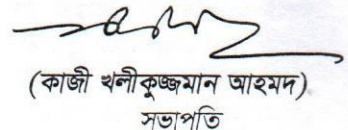 (কাজী খলীকুজ্জমান আহমদ)
সভাপতি